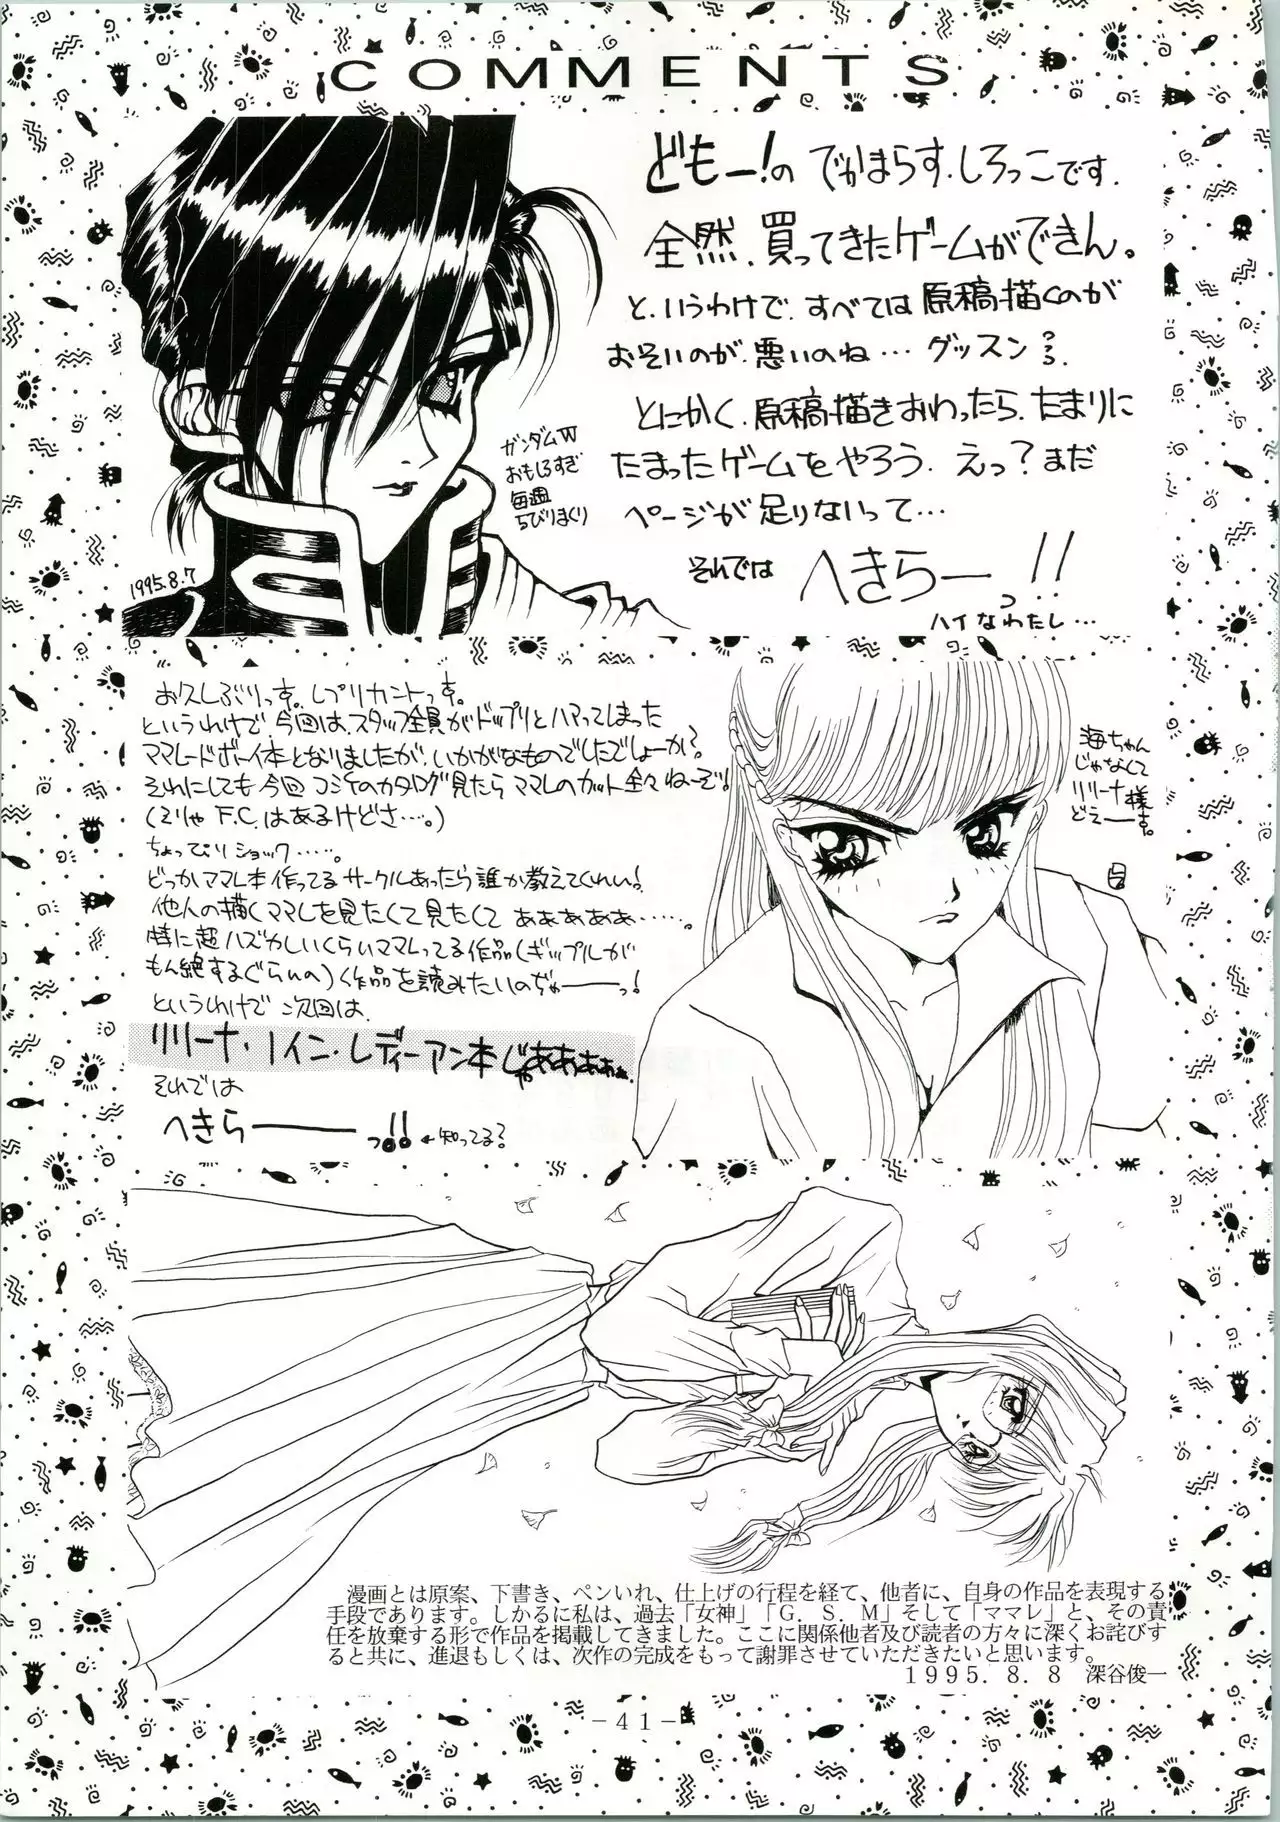 COMMENTS
どもー!の でかまらす.しろっこです.
全然.買ってきたゲームができん。
と.いうわけで.すべては原稿描くのが
おそいのが.悪いのね…グッスン
とにかく.原稿描きおわったら.たまりに
たまったゲームをやろう.えっ?まだ
ページが足りないって…
それでは へきらーっ!!
ハイなわたし…
ガンダムW
おもしろすぎ
毎週
ちびりまくり
1995.8.7
お久しぶりっす。レプリカントっす。
というわけで、今回は、スタッフ全員がドップリとハマってしまった
ママレードボーイ本となりましたが、いかがなものでしたでしょーか?
それにしても今回コミケのカタログ見たらママレのカット全々ねーぞ!
(そりゃF.C.はあるけどさ…。)
ちょっぴりショック……。
どっかママレ本作ってるサークルあったら誰か教えてくれい!
他人の描くママレを見たくて見たくてああああああ……。
特に超ハズかしいくらいママレってる作品(ギップルが
もん絶するぐらいの)く作品を読みたいのぢゃーーっ!
というわけで次回は、
リリーナ・ノイン・レディーアン本じゃああああ
それでは
へきらーーっ!! ←知ってる?
海ちゃん
じゃなくて
リリーナ様
どえーーす。
漫画とは原案、下書き、ペンいれ、仕上げの行程を経て、他者に、自身の作品を表現する
手段であります。しかるに私は、過去「女神」「G.S.M」そして「ママレ」と、その責
任を放棄する形で作品を掲載してきました。ここに関係他者及び読者の方々に深くお詫びす
ると共に、進退もしくは、次作の完成をもって謝罪させていただきたいと思います。
1995.8.8 深谷俊一
－41－